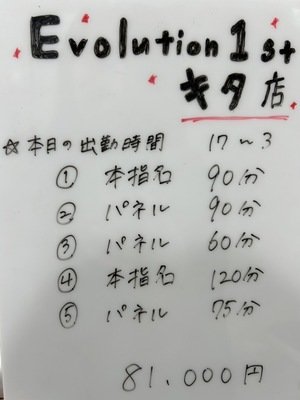 Evolution 1st
キタ店
☆本日の出勤時間 17〜3
① 本指名 90分
② パネル 90分
③ パネル 60分
④ 本指名 120分
⑤ パネル 75分
81,000円